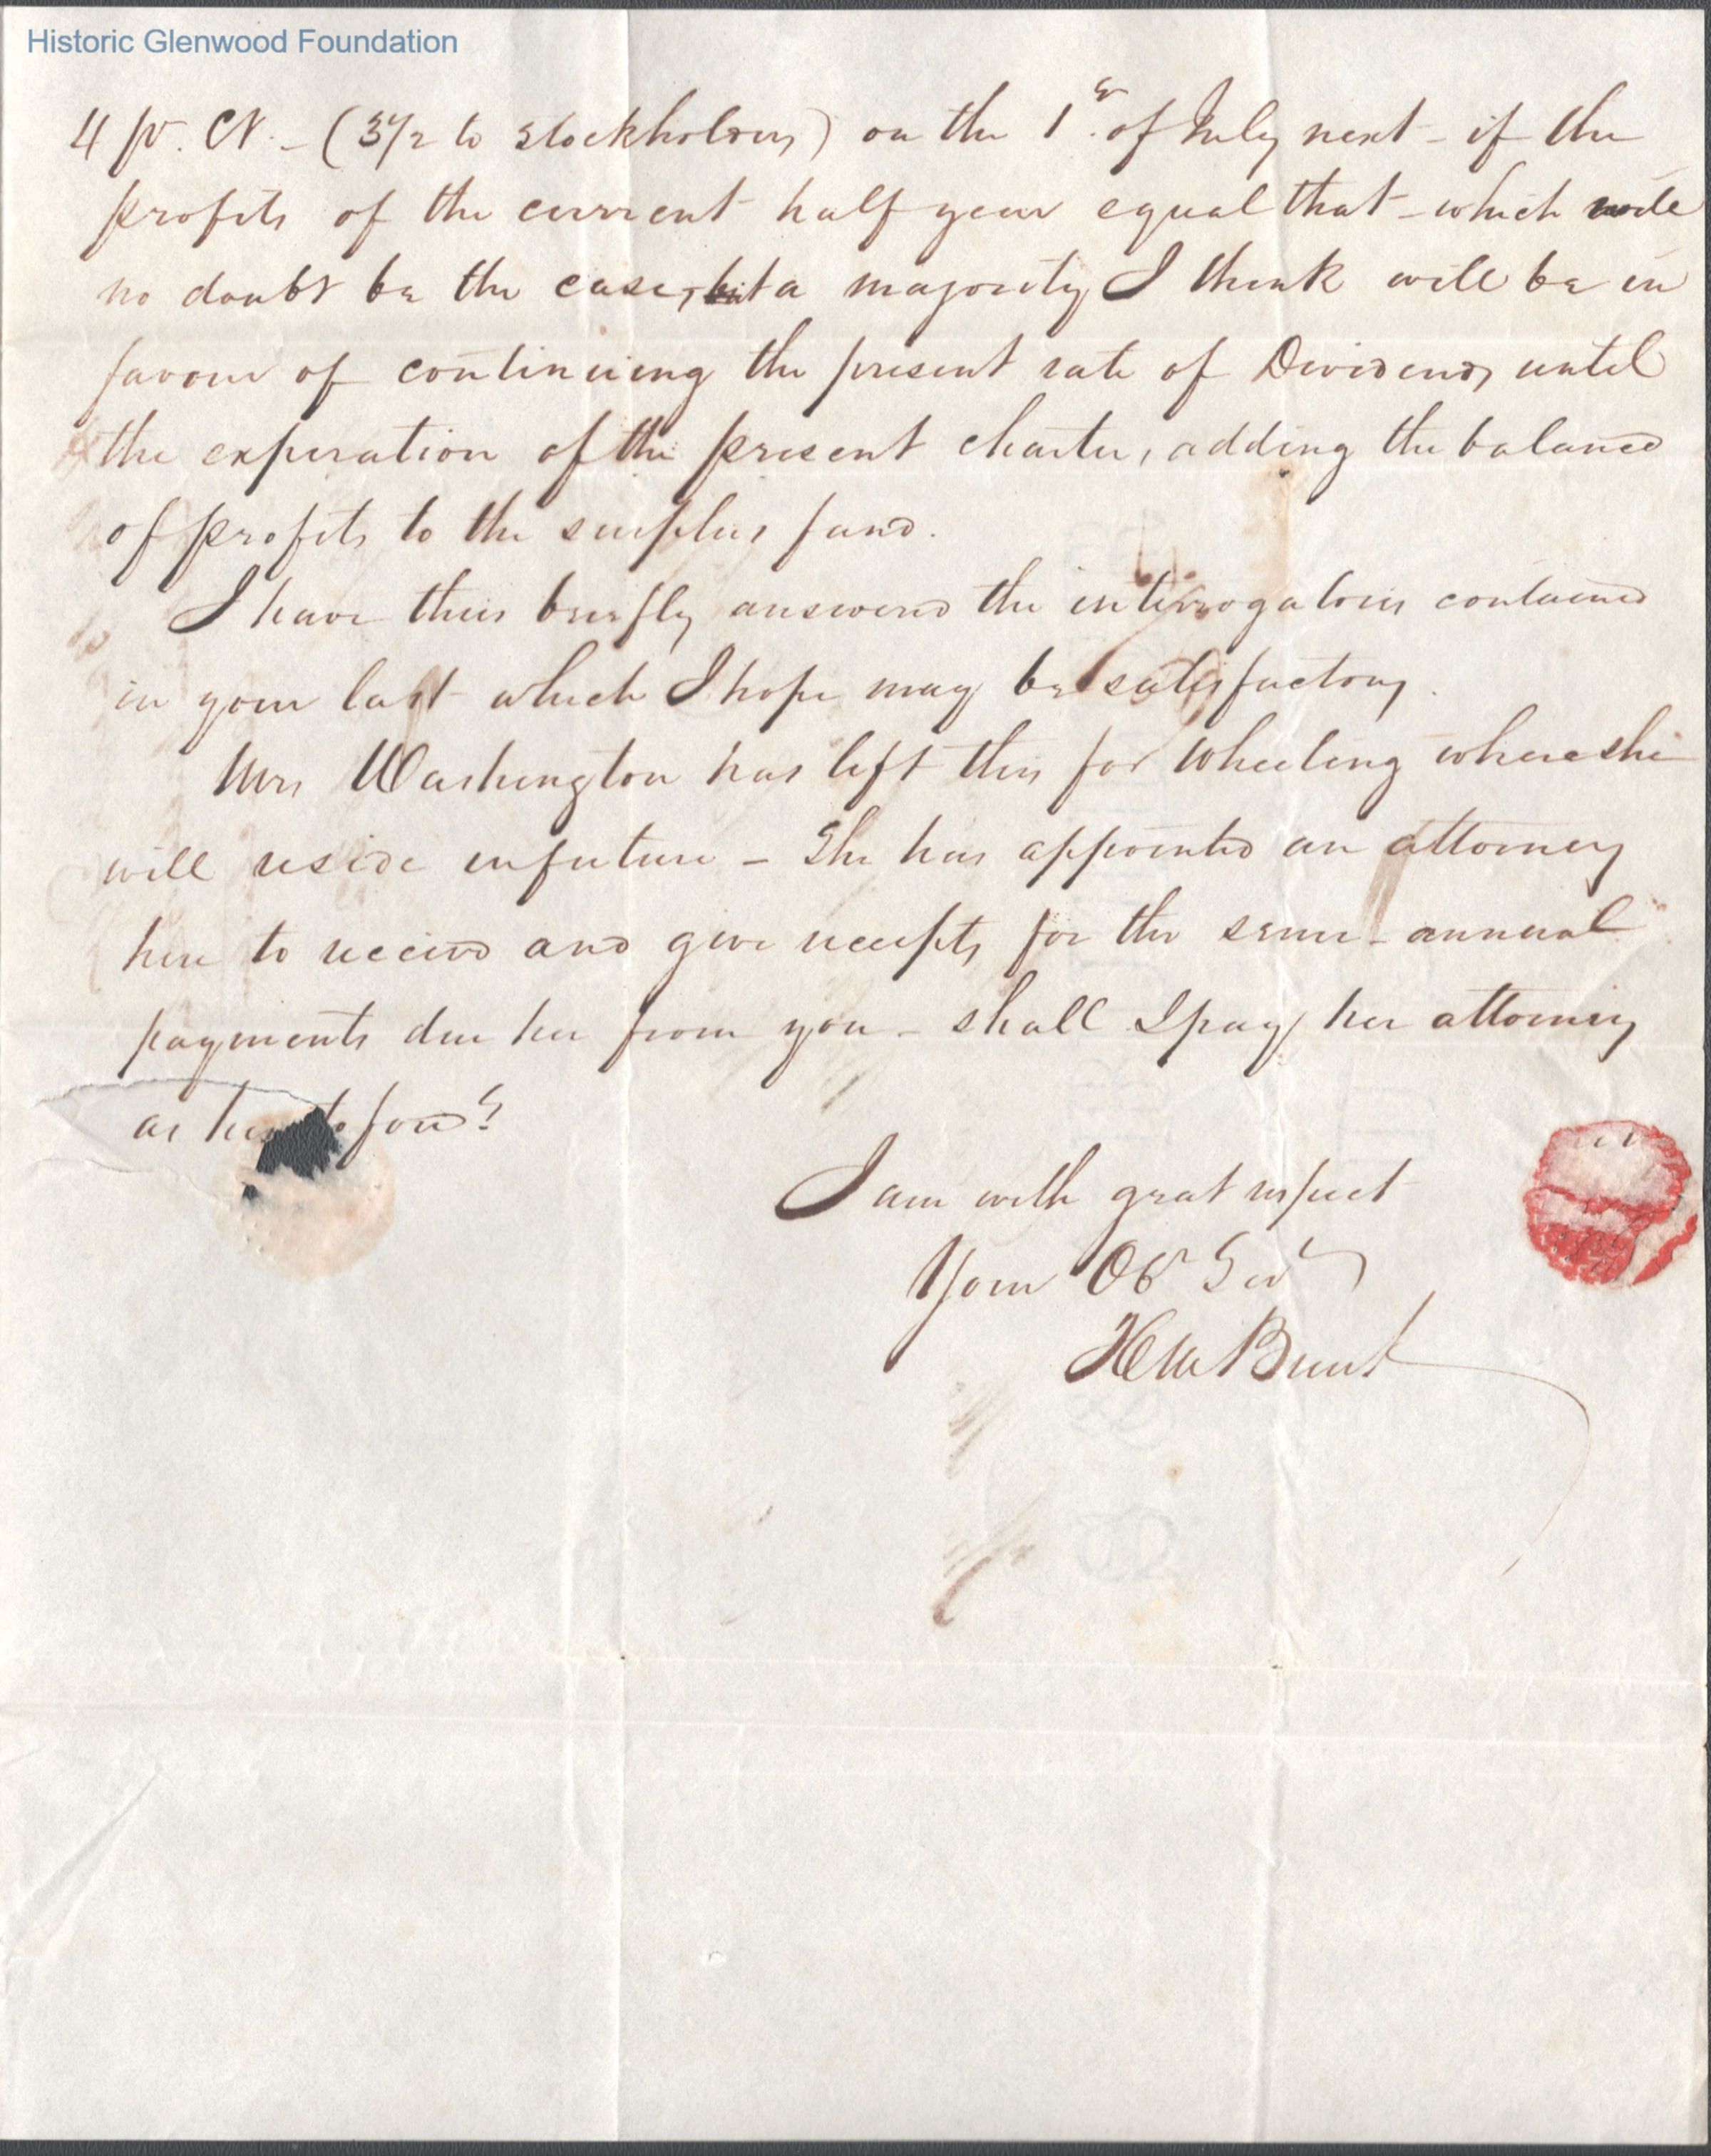 Historic Glenwood Foundation
4 pr. Ct. - (3 1/2 to stockholders) on the 1st. of July next - if the
profits of the current half year equal that - which will
no doubt be the case, but a majority I think will be in
favour of continuing the present rate of Dividends until
the experation of the present charter, adding the balance
of profits to the surplus fund.
I have thus briefly answered the interrogatories contained
in your last which I hope may be satisfactory.
Mrs Washington has left this for Wheeling where she
will reside in future - She has appointed an attorney
here to receive and give receipts for the semi-annual
payments due her from you - shall I pay her attorney
as heretofore?
I am with great respect
Your Obt Servt